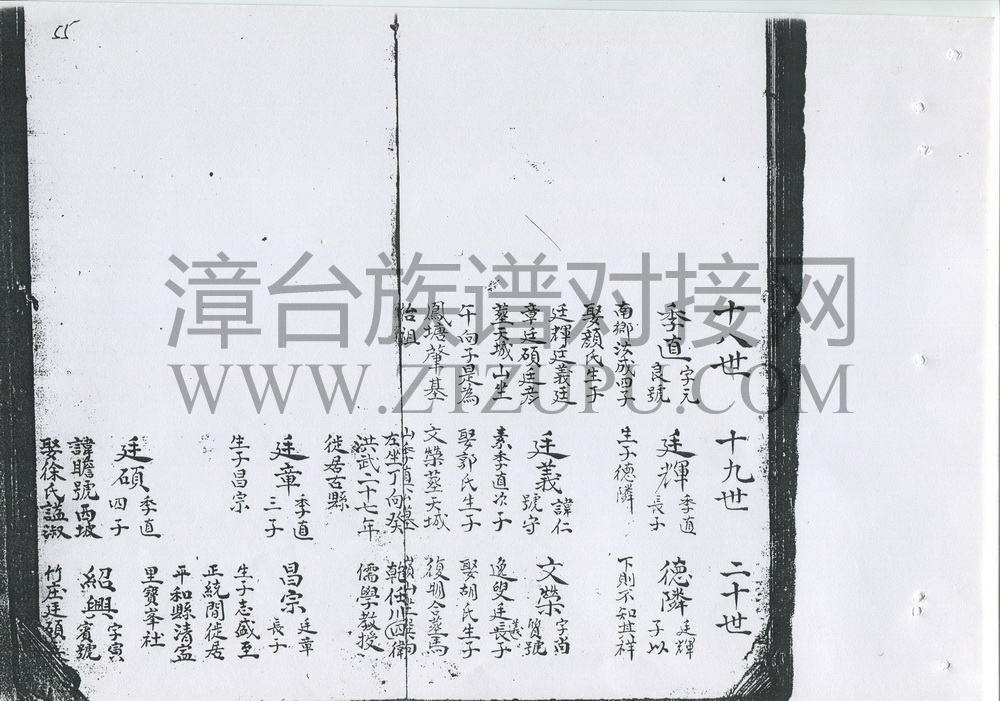 55
十八世
季直 字元良號
南鄉汝成四子
娶顏氏生子
廷輝廷義廷
章廷碩廷彥
葬天城山坐
午向子是為
鳳塘肇基
始祖
十九世
廷輝 季直長子
生子德隣
廷義 諱仁號守
素季直次子
娶郭氏生子
文榮葬天城
山季直公墓
左坐丁向癸
洪武二十七年
徙居古縣
廷章 季直三子
生子昌宗
廷碩 季直四子
諱瞻號西坡
娶徐氏謚淑
二十世
德隣 廷輝子以
下則不知其祥
文榮 字尚質號
逸叟廷義長子
娶胡氏生子
復明合葬馬
嶺山坐向
乾任川四衛
儒學教授
昌宗 廷章長子
生子志盛至
正統間徙居
平和縣清寧
里寶峯社
紹興 字寅賓號
竹庄廷碩
漳台族谱对接网
WWW.ZTZUPU.COM